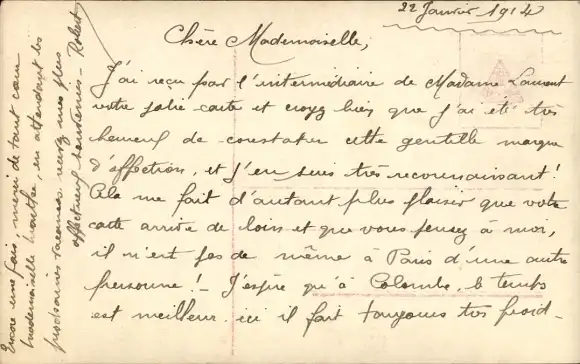 22 Janvier 1914
Chère Mademoiselle,
J'ai reçu par l'intermédiaire de Madame Laurent
votre jolie carte et croyez bien que j'ai été très
heureux de constater cette gentille marque
d'affection, et j'en suis très reconnaissant!
Cela me fait d'autant plus plaisir que votre
carte arrive de loin et que vous pensez à moi,
il n'est pas de même à Paris d'une autre
personne! - J'espère qu'à Colombo, le temps
est meilleur. ici il fait toujours très froid -
Encore une fois, merci de tout cœur
Mademoiselle Marthe, en attendant les
prochaines vacances, recevez mes plus
affectueux souvenirs - Robert